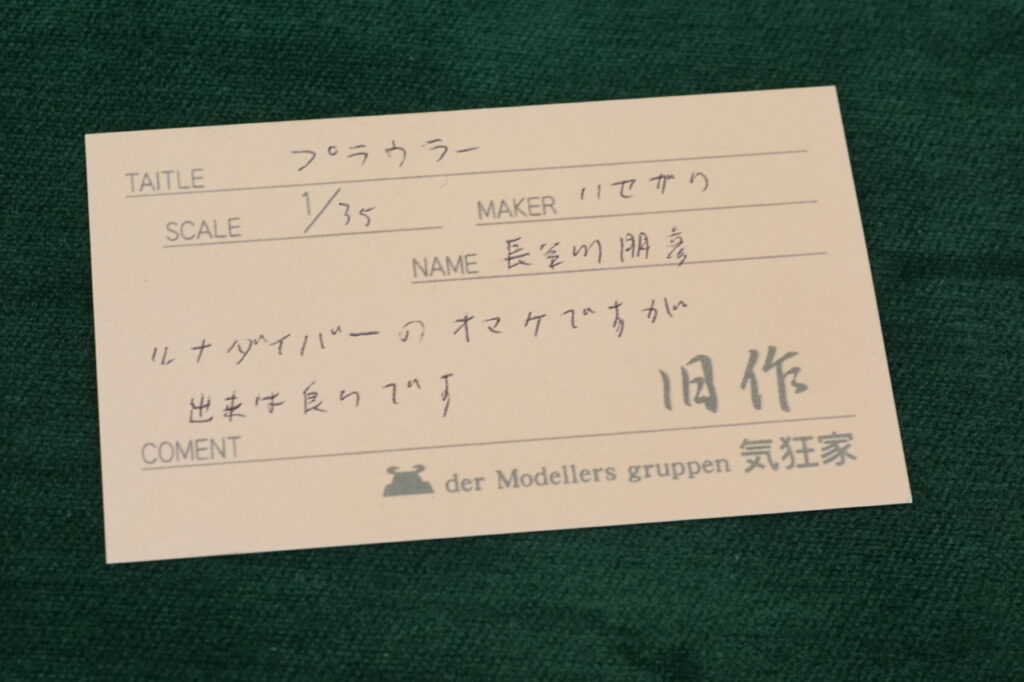 TAITLE プラウラー
SCALE 1/35 MAKER ハセガワ
NAME 長谷川朋彦
ルナダイバーのオマケですが
出来は良いです
旧作
COMENT
der Modellers gruppen 気狂家